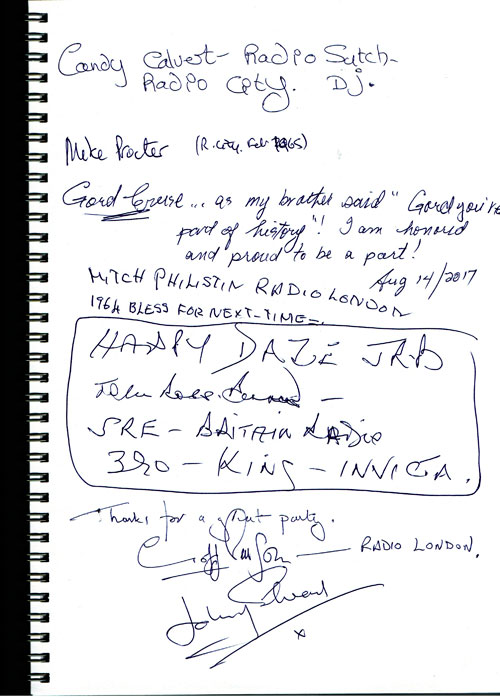 Candy Calvert - Radio Sutch -
Radio City. Dj.
Mike Procter (R. City. Feb 1965)
Gord Cruse... as my brother said "Gord you're
part of history"! I am honored
and proud to be a part!
Aug 14/2017
MITCH PHILISTIN RADIO LONDON
1964 BLESS FOR NEXT-TIME
HAPPY DAZE
SRE - BRITAIN RADIO
390 - KING - INVICTA.
Thanks for a great party.
RADIO LONDON.
x